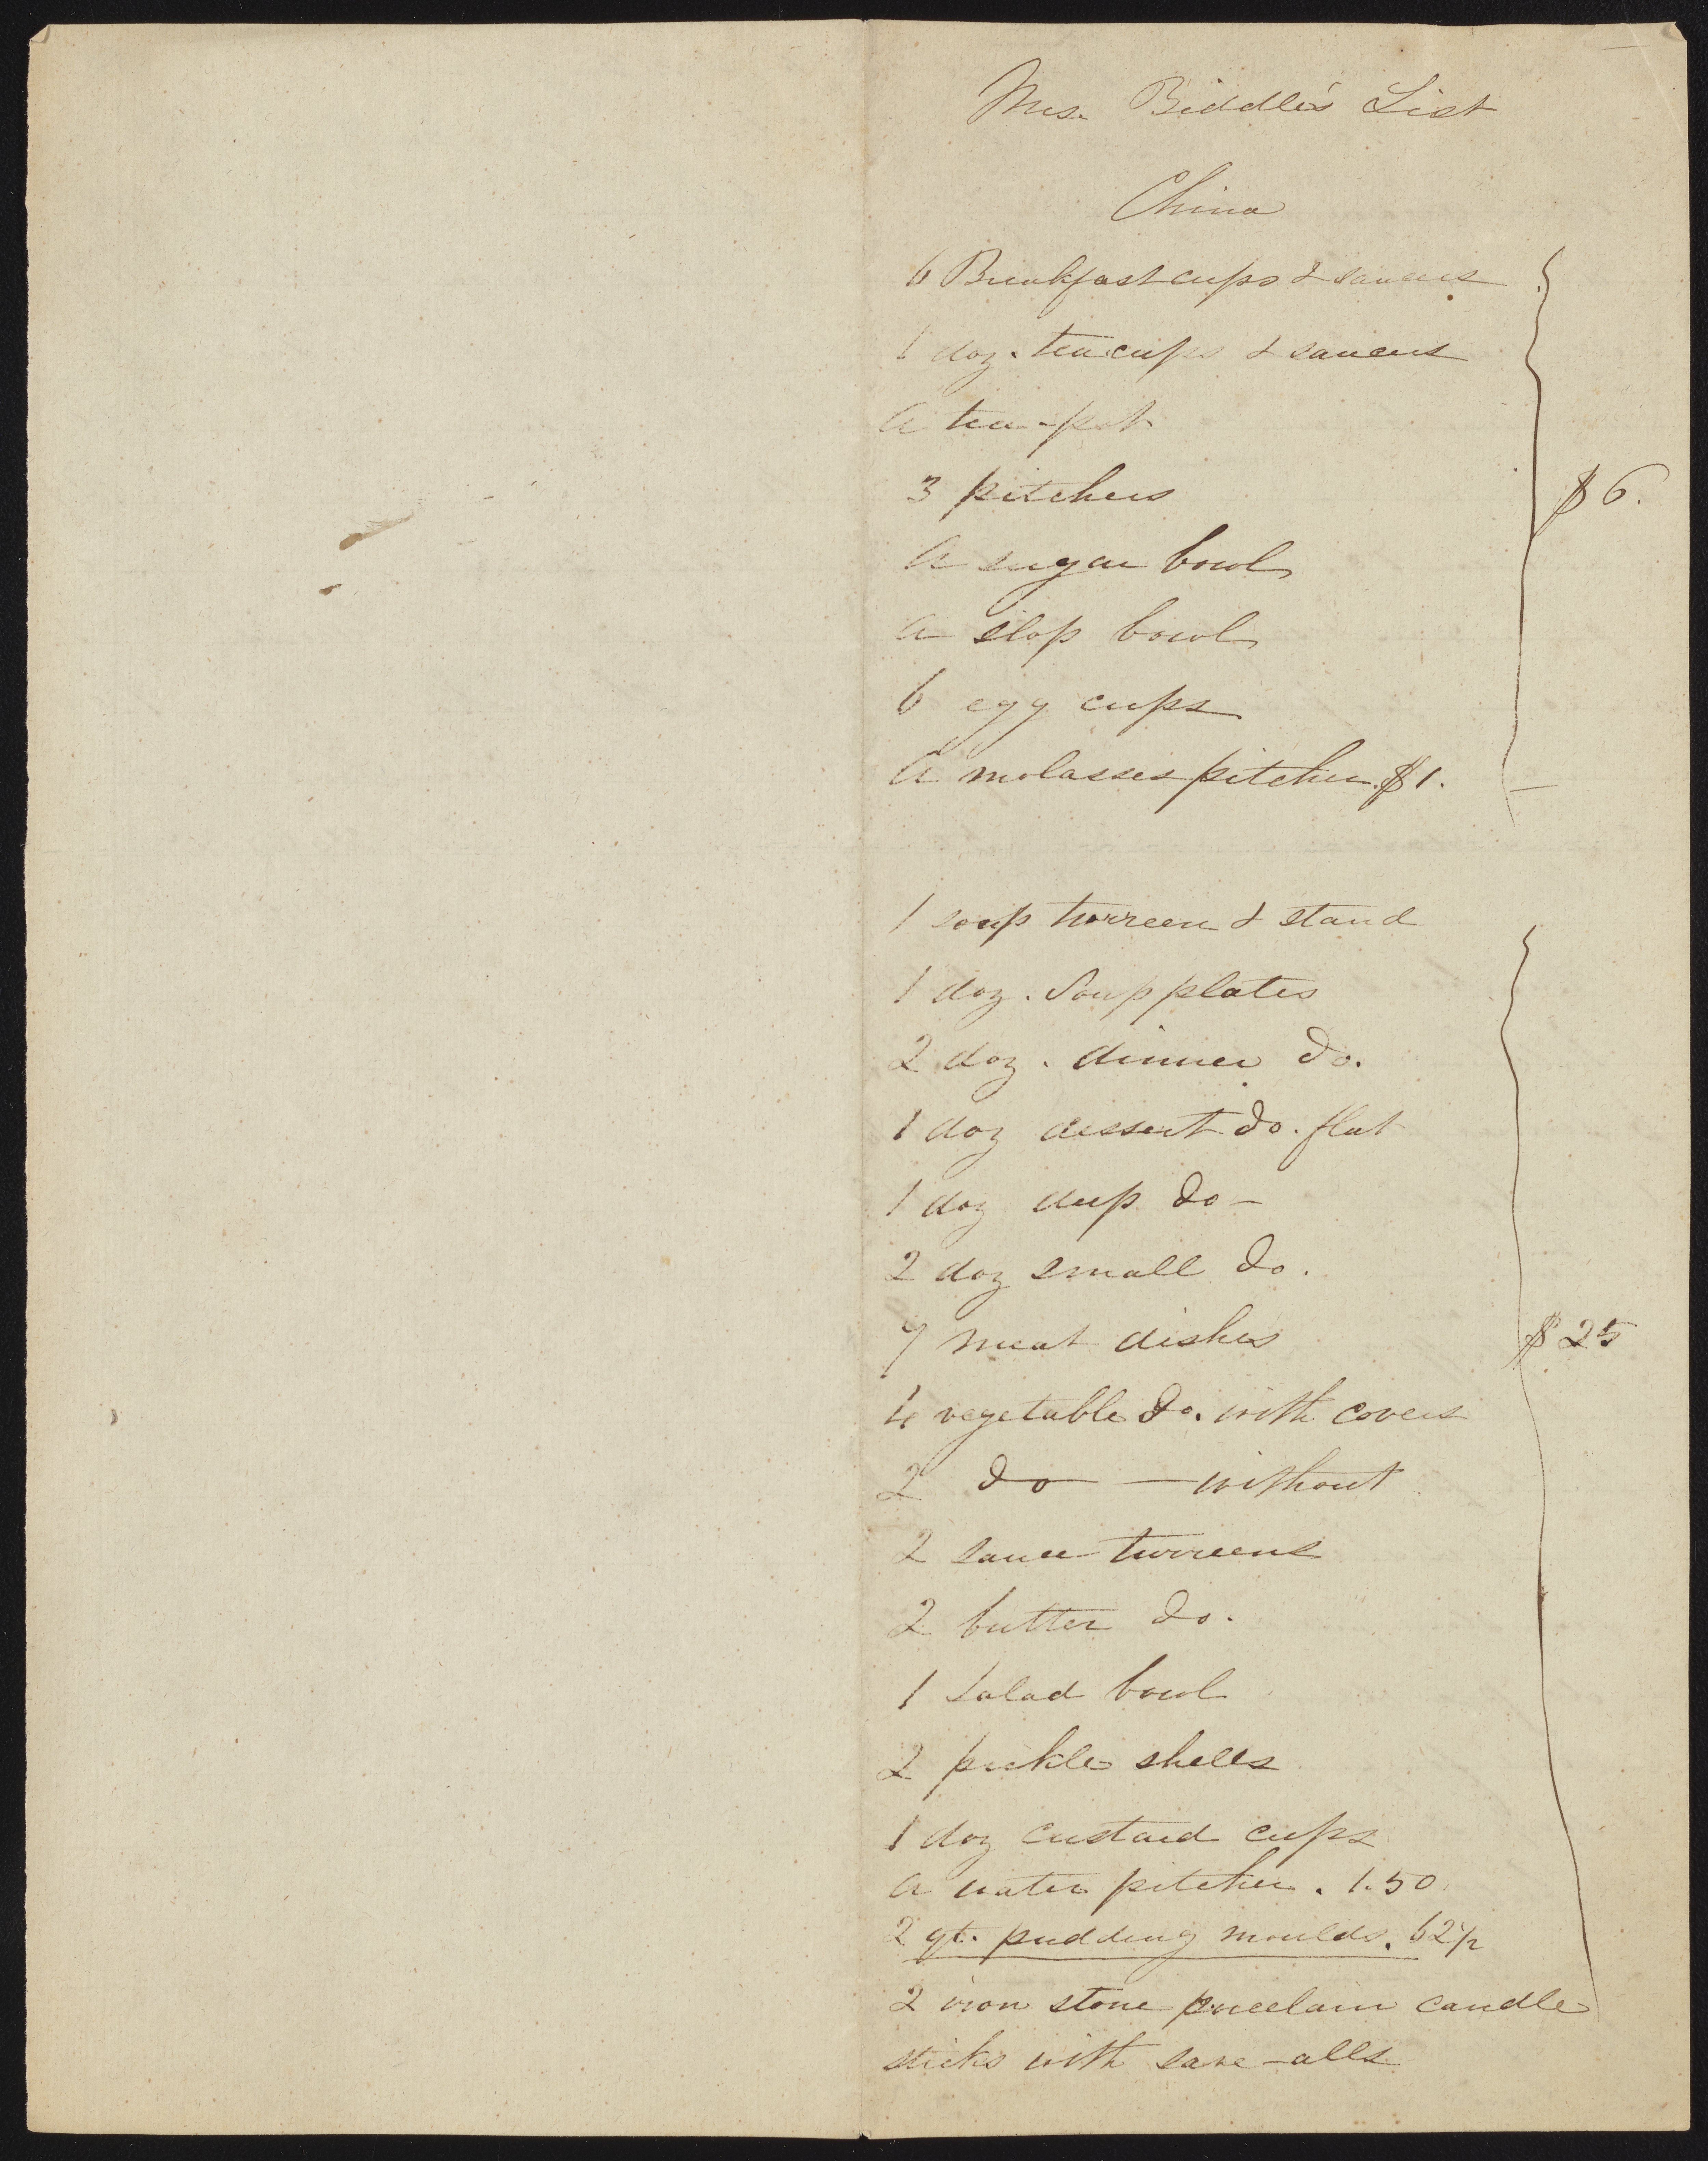 Mrs. Biddle's List
China
6 Breakfast cups & saucers
1 doz. tea cups & saucers
A tea-pot
3 pitchers
A sugar bowl
A slop bowl
6 egg cups
A molasses pitcher. $1.
$6.
1 soup turreen & stand
1 doz. Soup plates
2 doz. dinner do.
1 doz dessert do. flat
1 doz deep do-
2 doz small do.
7 meat dishes
4 vegetable do. with covers
2 do — without
2 sauce turreens
2 butter do.
1 Salad bowl
2 pickle shells
1 doz custard cups
A water pitcher. 1.50.
2 qt. pudding moulds. 62 1/2
$25
2 iron stone porcelain candle
sticks with save-alls